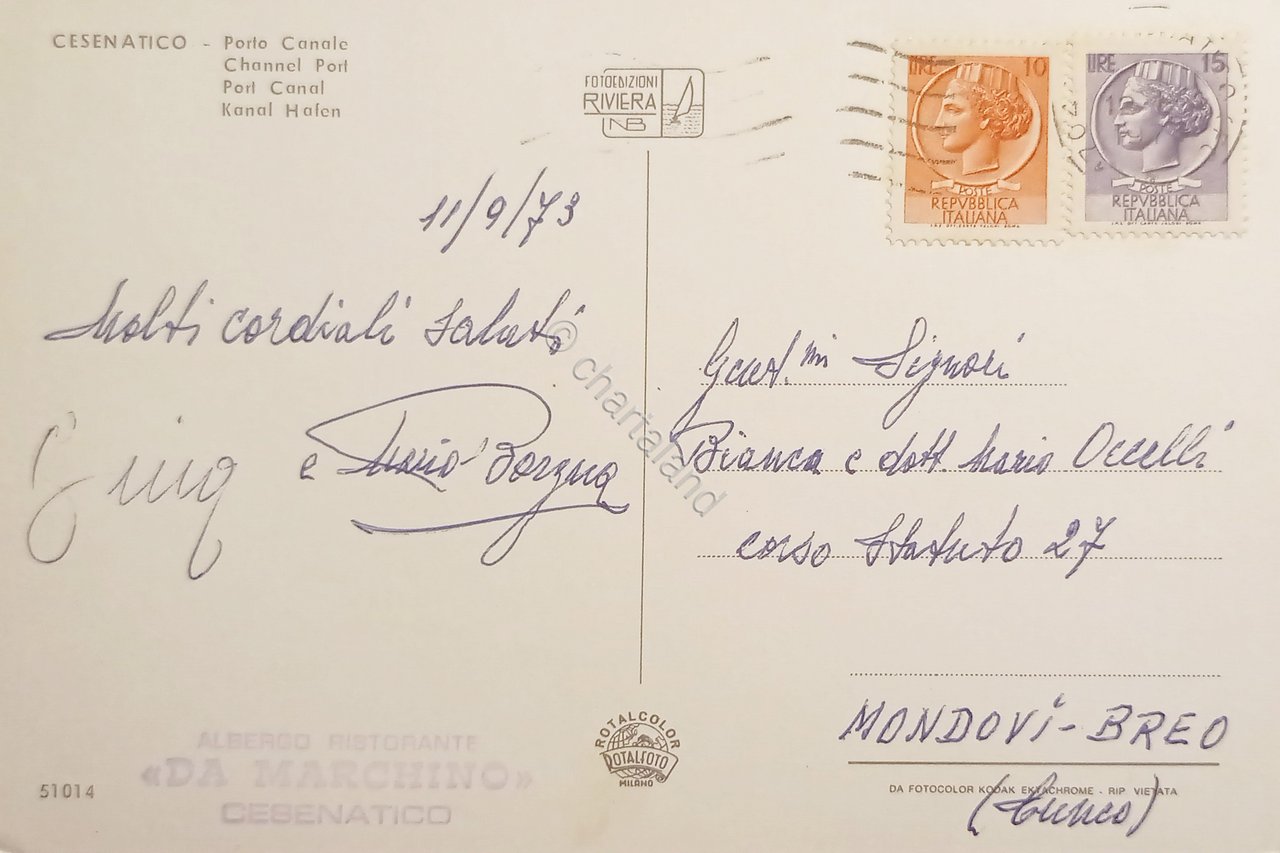 CESENATICO - Porto Canale
Channel Port
Port Canal
Kanal Hafen
FOTOEDIZIONI
RIVIERA
NB
LIRE 10
POSTE
REPVBBLICA
ITALIANA
LIRE 15
POSTE
REPVBBLICA
ITALIANA
11/9/73
Molti cordiali saluti
e Mario Borgna
© chartaland
Gent.mi Signori
Bianca e dott. Mario Occelli
corso Statuto 27
MONDOVÌ - BREO
(Cuneo)
ROTALCOLOR
ROTALFOTO
MILANO
ALBERGO RISTORANTE
«DA MARCHINO»
CESENATICO
51014
DA FOTOCOLOR KODAK EKTACHROME - RIP. VIETATA